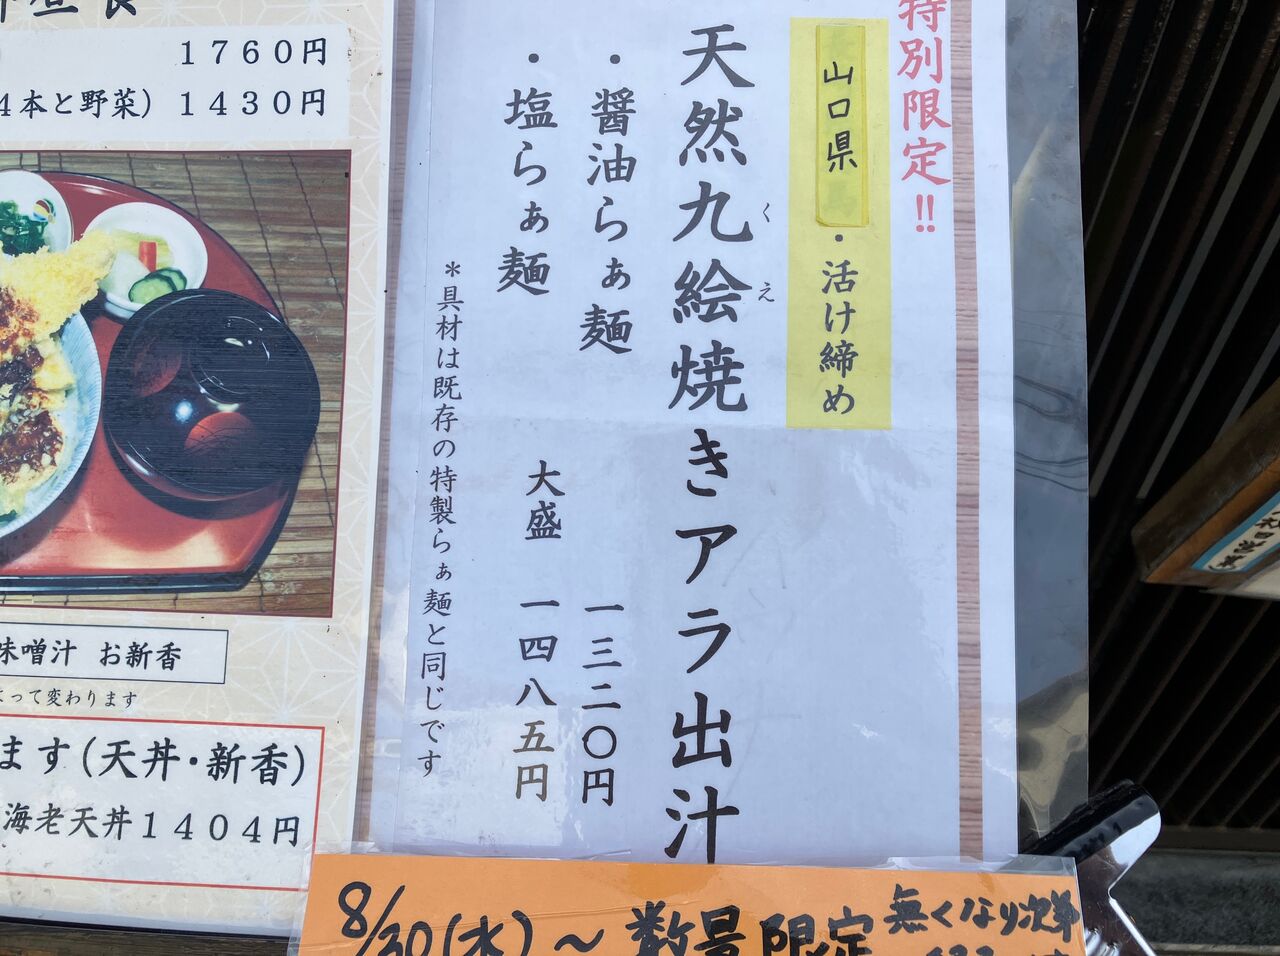 1760円
4本と野菜) 1430円
味噌汁 お新香
よって変わります
ます(天丼・新香)
海老天丼1404円
特別限定!!
山口県・活け締め
天然九絵焼きアラ出汁
くえ
・醤油らぁ麺 一三二〇円
・塩らぁ麺 大盛 一四八五円
＊具材は既存の特製らぁ麺と同じです
8/30(水)~数量限定
無くなり次第